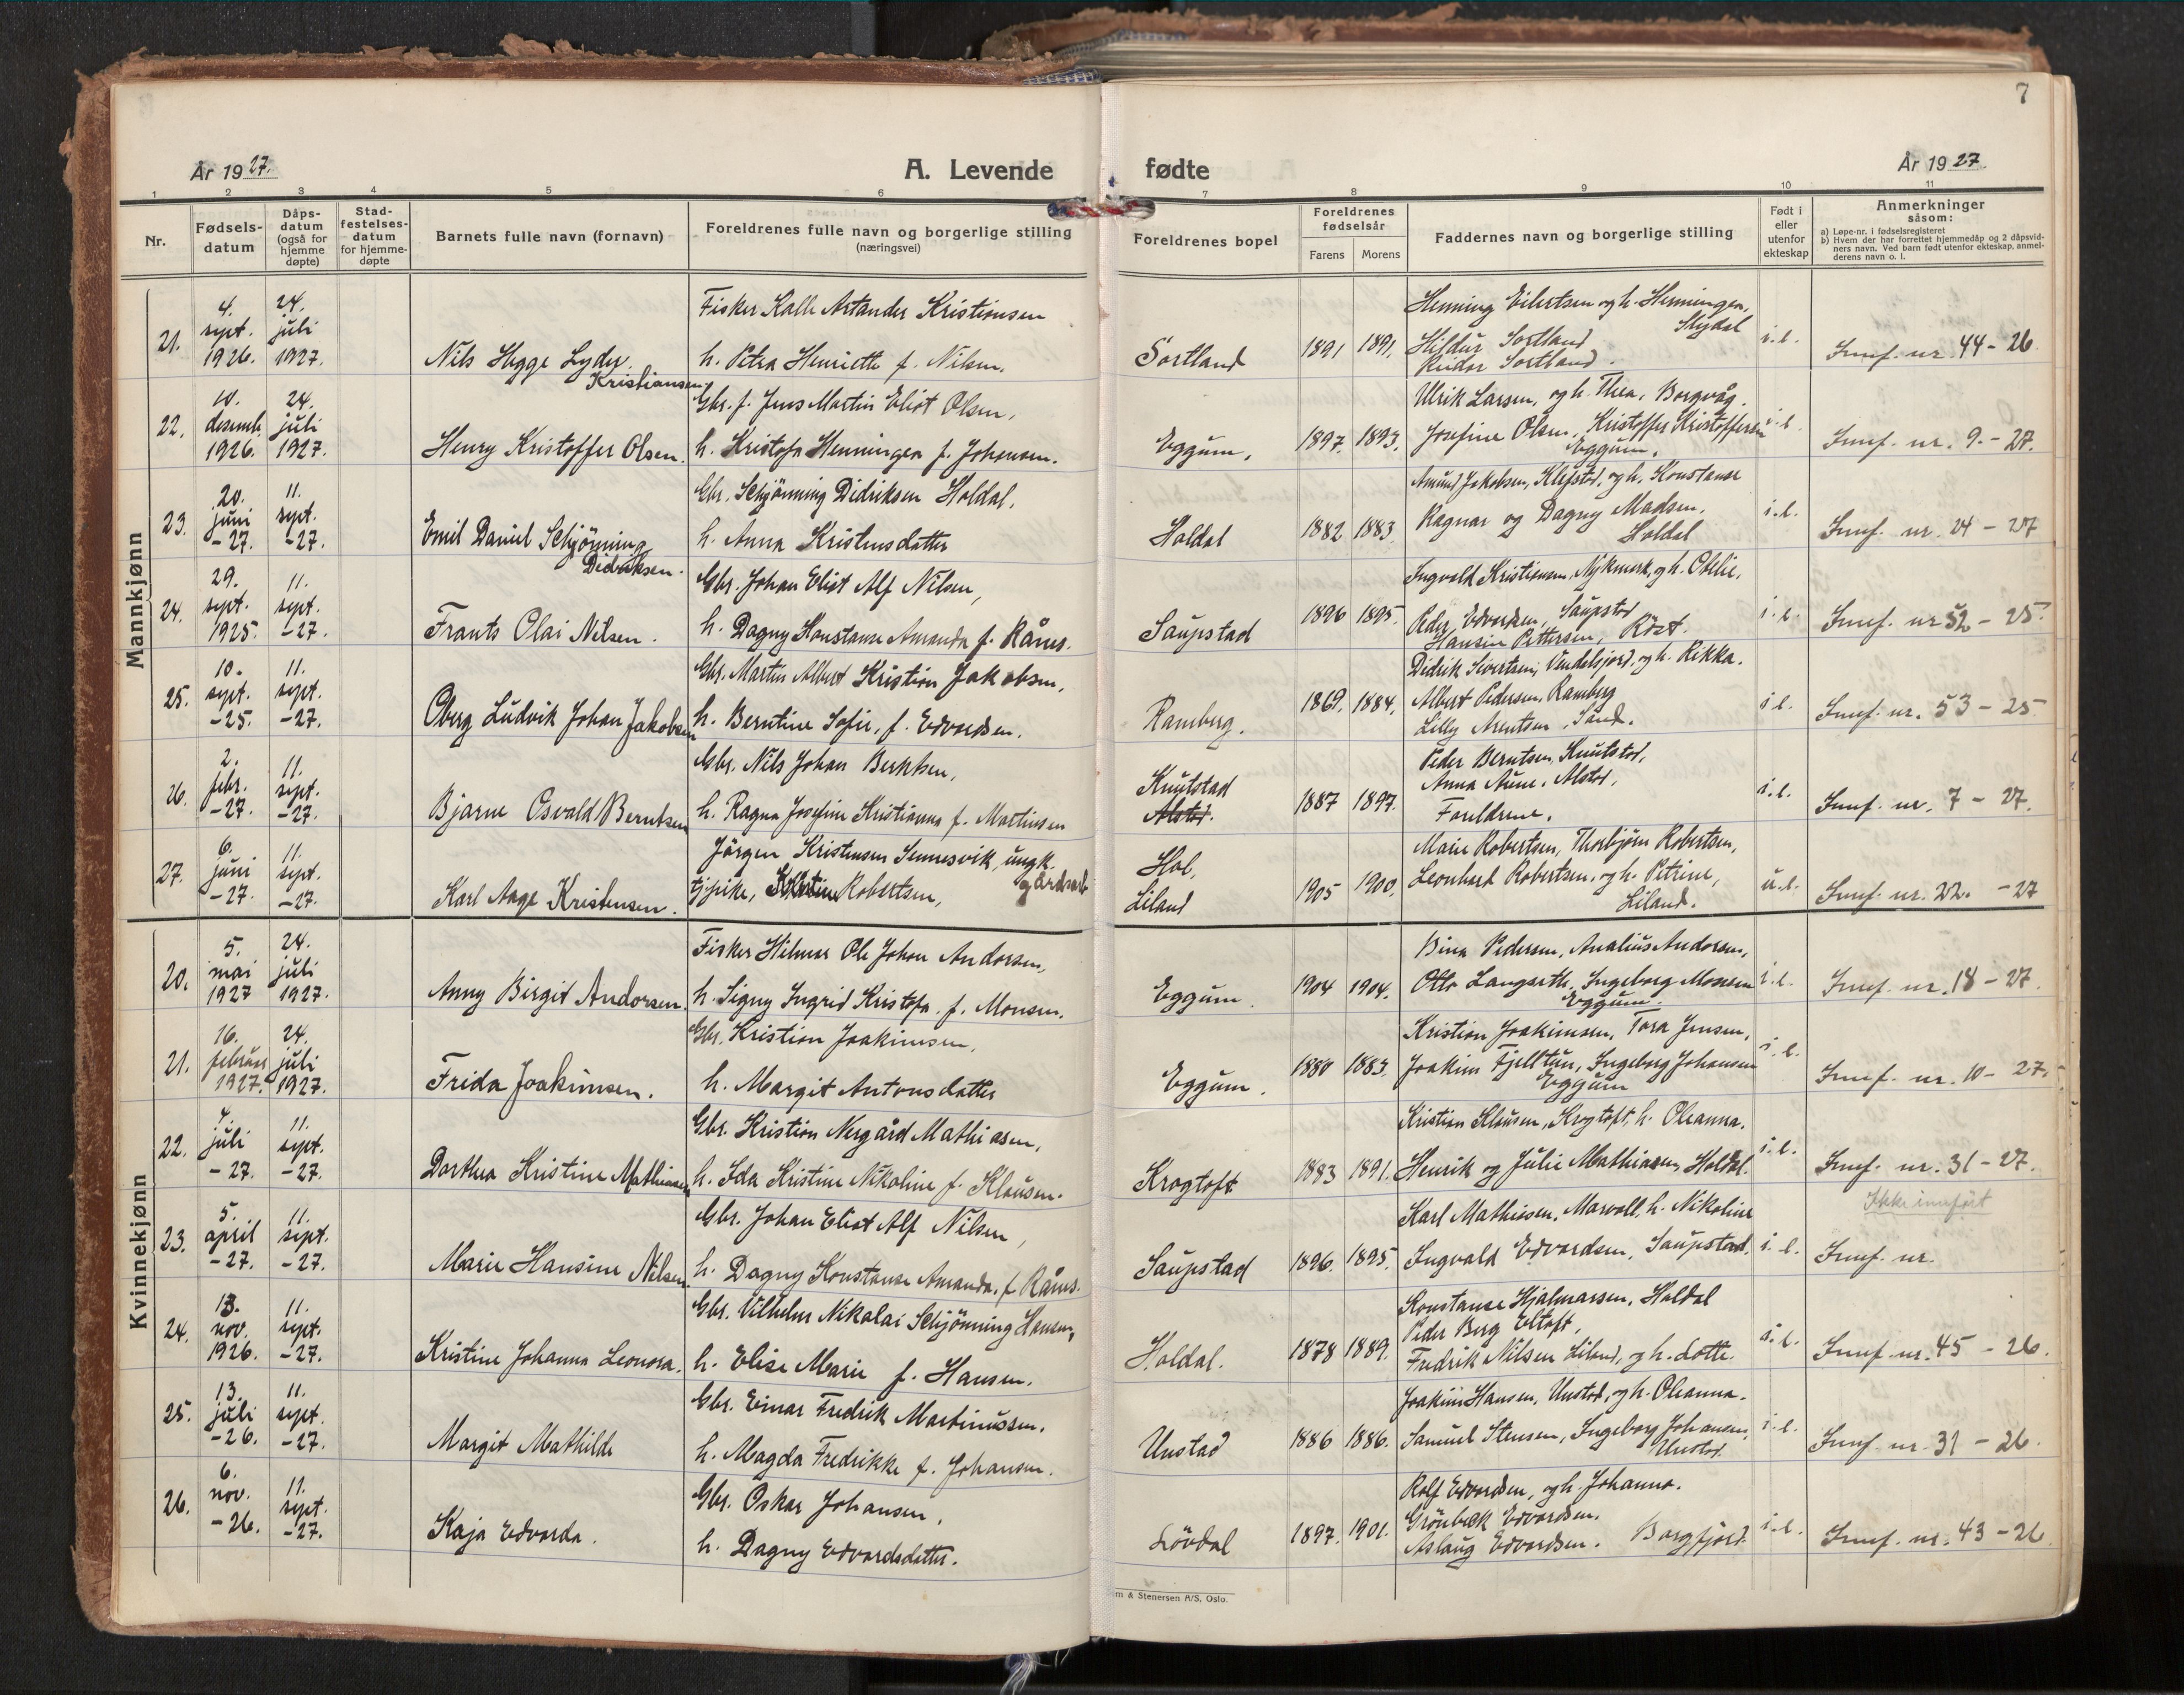 7
År 1927.
A. Levende fødte
År 1927
1 2 3 4 5 6 7 8 9 10 11
Nr.
Fødsels-
datum
Dåps-
datum
(også for
hjemme
døpte)
Stad-
festelses-
datum
for hjemme-
døpte
Barnets fulle navn (fornavn)
Foreldrenes fulle navn og borgerlige stilling
(næringsvei)
Foreldrenes bopel
Foreldrenes
fødselsår
Farens Morens
Faddernes navn og borgerlige stilling
Født i
eller
utenfor
ekteskap
Anmerkninger
såsom:
a) Løpe-nr. i fødselsregisteret
b) Hvem der har forrettet hjemmedåp og 2 dåpsvid-
ners navn. Ved barn født utenfor ekteskap, anmel-
derens navn o. l.
Mannkjønn
21.
4.
sept.
1926.
24.
juli
1927.
Nils Hegge Lyder
Kristiansen
Fisker Kalle Artander Kristiansen
h. Petra Henriette f. Nilsen.
Sortland
1891 1891.
Henning Eilertsen og h. Henningea,
Slydal
Hildur Sortland
Reidar Sortland.
i.e.
Innf. nr. 44-26
22.
10.
desemb.
1926.
24.
juli
1927.
Henry Kristoffer Olsen.
Gbr. f. Jens Martin Eliot Olsen,
h. Kristofa Henningea f. Johansen.
Eggum.
1897. 1893.
Ulrik Larsen, og h. Thea, Borgvåg.
Josefine Olsen, Kristoffer Kristoffersen
Eggum.
i.e.
Innf. nr. 9.-27.
23.
20.
juni
-27.
11.
sept.
-27.
Emil Daniel Schjönning
Didriksen.
Gbr. Schjönning Didriksen Holdal,
h. Anna Kristensdatter
Holdal
1882 1883
Amund Jakobsen, Klefstod, og h. Konstanse
Ragnar og Dagny Madsen.
Holdal
i.e.
Innf. nr. 24-27
24.
29.
sept.
1925.
11.
sept.
-27.
Frants Olai Nilsen.
Gbr. Johan Eliot Alf Nilsen,
h. Dagny Konstanse Amanda f. Rånes.
Saupstad
1896 1895.
Ingvald Kristiansen, Nykmark, og h. Otelie.
Peder Edvardsen, Saupstad
Hansine Pettersen, Röst.
i.e.
Innf. nr 52-25.
25.
10.
sept.
-25.
11.
sept.
-27.
Oberg Ludvik Johan Jakobsen
Gbr. Martin Albert Kristian Jakobsen,
h. Berntine Sofie, f. Edvardsen.
Ramberg.
1869. 1884.
Didrik Sivertsen, Vendelsjord, og h. Rikka.
Albert Pedersen, Ramberg
Lilly Arentsen, Sand.
i.e.
Innf. nr. 53-25
26.
2.
febr.
-27.
11.
sept.
-27.
Bjarne Osvald Berntsen
Gbr. Nils Johan Berntsen,
h. Ragna Josefine Kristianna f. Martinsen
Knutstad
Alstad.
1887 1897.
Peder Berntsen, Knutstad,
Anna Aune, Alstad,
Foreldrene.
i.e.
Innf. nr. 7-27.
27.
6.
juni
-27.
11.
sept.
-27.
Karl Aage Kristensen.
Jörgen Kristensen Sennesvik, ungk.
gårdsarb
tj.pike, Robertsen,
Hol,
Liland
1905 1900.
Marie Robertsen, Thorbjørn Robertsen,
Leonhard Robertsen, og h. Petrine,
Liland.
u.e.
Innf. nr. 22. -27
Kvinnekjønn
20.
5.
mai
1927
24.
juli
1927.
Anny Birgit Andorsen
Fisker Hilmar Ole Johan Andorsen,
h. Signy Ingrid Kristofa f. Monsen.
Eggum.
1904 1904.
Bina Pedersen, Analius Andorsen,
Otto Langseth, Ingeborg Monsen
Eggum.
i.e.
Innf. nr. 18-27.
21.
16.
februar
1927.
24.
juli
1927.
Frida Joakimsen.
Gbr. Kristian Joakimsen,
h. Margit Antonsdatter
Eggum.
1880 1883.
Kristian Joakimsen, Tora Jensen,
Joakim Fjelltun, Ingeborg Johansen
Eggum
i.e.
Innf. nr. 10-27.
22.
4.
juli
-27.
11.
sept.
-27.
Dorthea Kristine Mathiasen
Gbr. Kristian Nergård Mathiasen,
h. Ida Kristine Nikoline f. Klausen.
Krogtoft
1883 1891.
Kristian Klausen, Krogtoft, h. Oleanna.
Henrik og Julie Mathiasen, Holdal.
i.e.
Innf. nr. 31-27.
Ikke innfört
23.
5.
april
-27.
11.
sept.
-27.
Marie Hansine Nilsen
Gbr. Johan Eliot Alf Nilsen,
h. Dagny Konstanse Amanda, f. Rånes.
Saupstad
1896. 1895.
Karl Mathiesen, Marvoll, h. Nikoline
Ingvald Edvardsen, Saupstad.
i.e.
Innf. nr.
24.
13.
nov.
1926.
11.
sept.
-27.
Kristine Johanna Leonora.
Gbr. Vilhelm Nikolai Schjönning Hansen,
h. Elise Marie f. Hansen.
Holdal.
1878 1889.
Konstanse Hjalmarsen, Holdal
Peder Berg Eltoft,
Fredrik Nilsen Liland, og h. Lotte.
i.e.
Innf. nr. 45-26.
25.
13.
juli
-26.
11.
sept.
-27.
Margit Mathilde
Gbr. Einar Fredrik Martinussen.
h. Magda Fredrikke f. Johansen.
Unstad
1886 1886.
Joakim Hansen, Unstad, og h. Oleanna.
Samuel Stensen, Ingeborg Johansen,
Unstad.
i.e.
Innf. nr 31-26.
26.
6.
nov.
-26.
11.
sept.
-27.
Kaja Edvarda.
Gbr. Oskar Johansen,
h. Dagny Edvardsdatter.
Lövdal
1897. 1901.
Rolf Edvardsen, og h. Johanna.
Grönbeck Edvardsen.
Aslaug Edvardsen. Borgfjord.
i.e.
Innf. nr. 43-26
m & Stenersen A/S, Oslo.